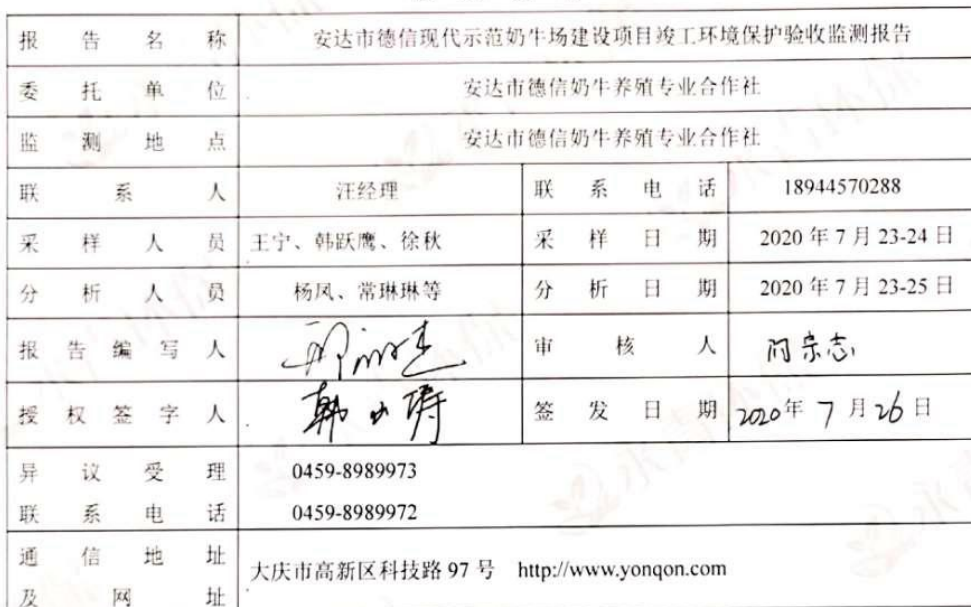 报告名称 安达市德信现代示范奶牛场建设项目竣工环境保护验收监测报告
委托单位 安达市德信奶牛养殖专业合作社
监测地点 安达市德信奶牛养殖专业合作社
联系人 汪经理 联系电话 18944570288
采样人员 王宁、韩跃鹰、徐秋 采样日期 2020年7月23-24日
分析人员 杨凤、常琳琳等 分析日期 2020年7月23-25日
报告编写人 审核人 闫宗志
授权签字人 签发日期 2020年7月26日
异议受理 0459-8989973
联系电话 0459-8989972
通信地址
大庆市高新区科技路97号 http://www.yonqon.com
及网址